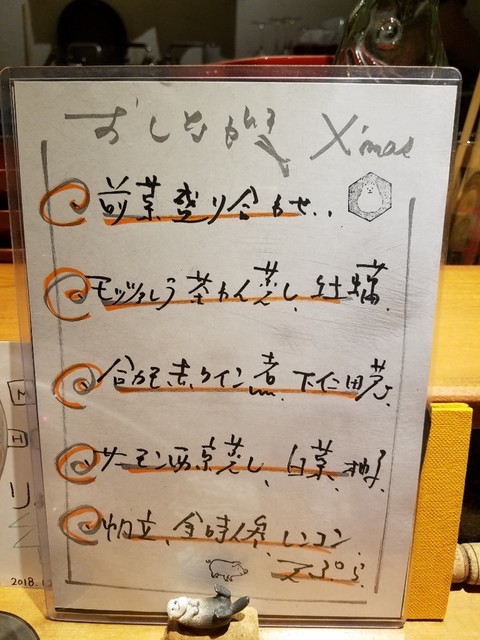 おしながき X'mas
前菜盛り合わせ..
モッツァレラ茶わん蒸し、牡蠣、
合鴨赤ワイン煮 下仁田葱、
サーモン西京蒸し、白菜、柚子、
帆立、金時人参、レンコン、
天ぷら
M
H
リ
2018.1